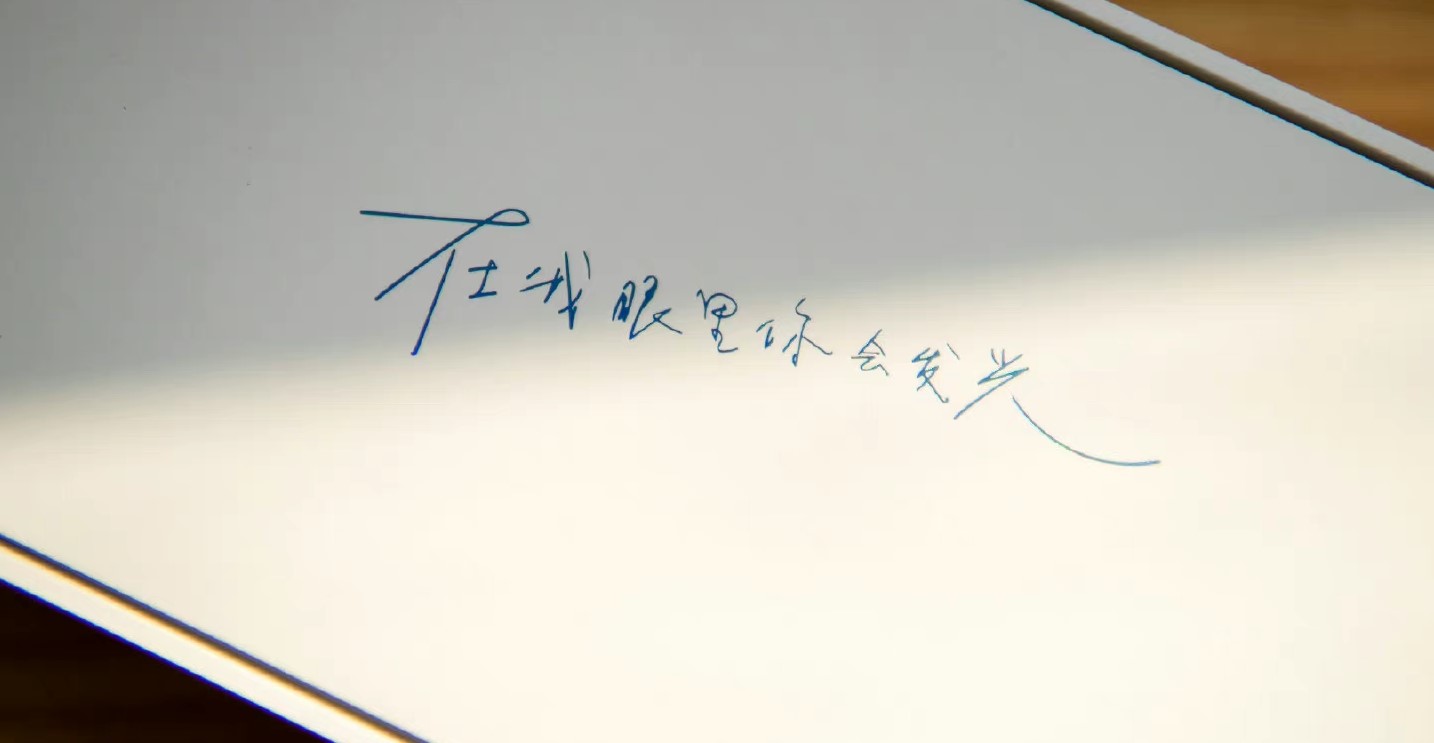 在我眼里你会发光